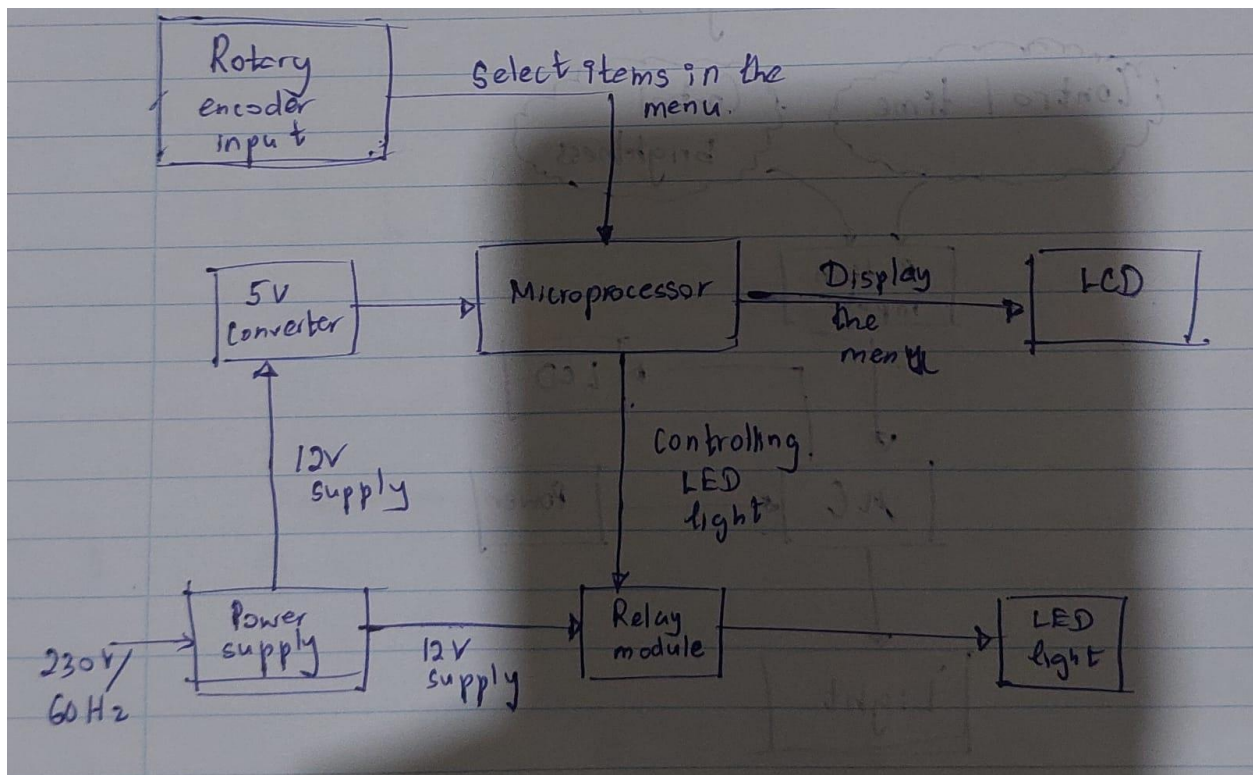 Rotary
encoder
input
Select items in the
menu.
5V
Converter
Microprocessor
Display
the
menu
LCD
12V
supply
Controlling
LED
light
230V/
60Hz
Power
supply
12V
supply
Relay
module
LED
light